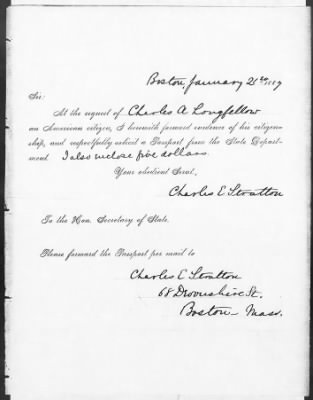 Boston, January 21st, 1889
Sir:
At the request of Charles A Longfellow
an American citizen, I herewith forward evidence of his citizen-
ship, and respectfully solicit a Passport from the State Depart-
ment. I also inclose five dollars.
Your obedient Servt.
Charles E Stratton
To the Hon. Secretary of State.
Please forward the Passport per mail to
Charles E Stratton
68 Devonshire St.
Boston Mass.